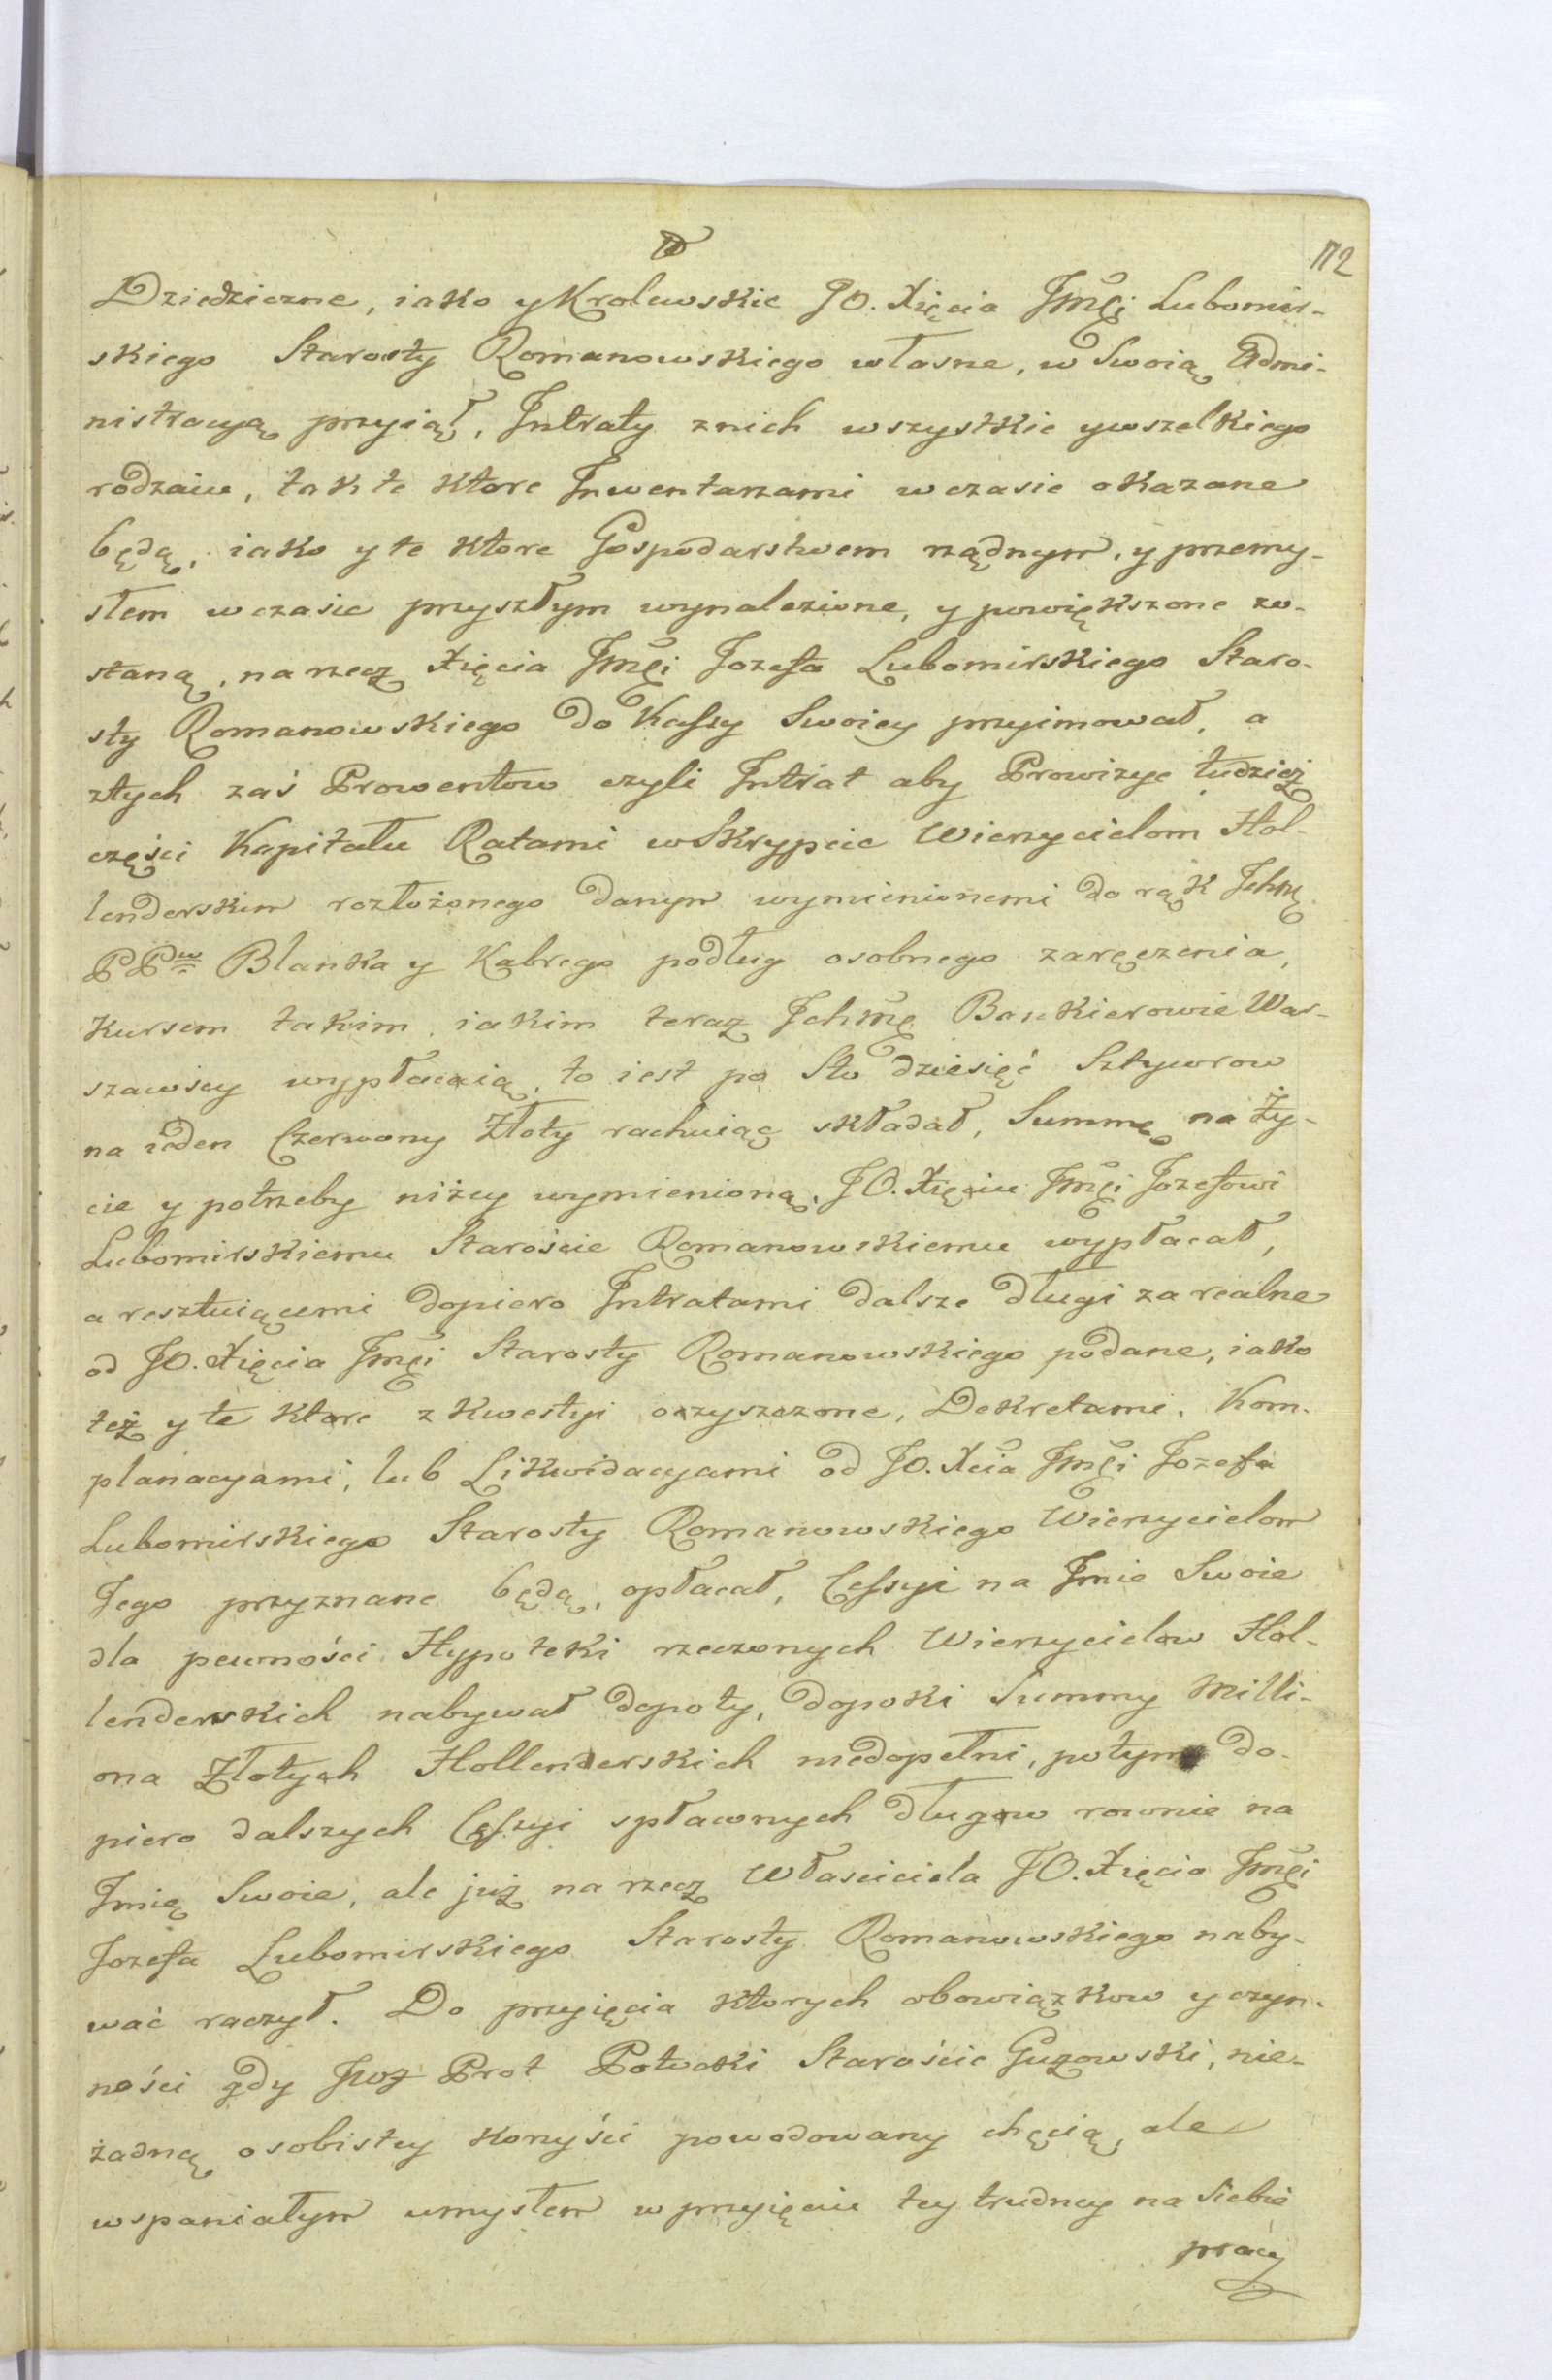 112
Dziedziczne, iako y Krolewskie JO. Xięcia Jmći Lubomir-
skiego Starosty Romanowskiego własne, w Swoią Admi-
nistracyą przyiął, Intraty znich wszystkie ywszelkiego
rodzaiu, tak te ktore Inwentarzami wczasie okazane
będą, iako yte ktore Gospodarstwem rządnym, y przemy-
słem wczasie przyszłym wynalezione, y powiększone zo-
staną, narzecz Xięcia Jmći Jozefa Lubomirskiego Staro-
sty Romanowskiego do Kassy Swoiey przyimował, a
ztych zaś Prowentow czyli Intrat aby Prowizye tudzież
części Kapitału Ratami wSkrypcie Wierzycielom Hol-
lenderskim rozłożonego danym wymienionemi do rąk Ichmę
PPw Blanka y Kabrego podług osobnego zaręczenia,
Kursem takim, iakim teraz Ichmę Bankierowie War-
szawscy wypłacaią, to iest po Sto dziesięć Sztywrow
na ieden Czerwony Złoty rachuiąc składał, Summę na ży-
cie y potrzeby niżey wymienioną, JO. Xięciu Jmći Jozefowi
Lubomirskiemu Staroście Romanowskiemu wypłacał,
a resztuiącemi dopiero Intratami dalsze długi za realne
od JO. Xięcia Jmći Starosty Romanowskiego podane, iako
też y te ktore z kwestyi oczyszczone, Dekretami, Kom-
planacyami, lub Likwidacyami od JO. Xcia Jmći Jozefa
Lubomirskiego Starosty Romanowskiego Wierzycielom
Jego przyznane będą, opłacał, Cessyi na Imie Swoie
dla pewności Hypoteki rzeczonych Wierzycielow Hol-
lenderskich nabywał dopoty, dopoki Summy Milli-
ona Złotych Hollenderskich niedopełni, potym do-
piero dalszych Cessyi spłaconych długow rownie na
Imię Swoie, ale już na rzecz Własciciela JO. Xięcia Jmći
Jozefa Lubomirskiego Starosty Romanowskiego naby-
wać raczył. Do przyięcia ktorych obowiązkow y czyn-
ności gdy Jwoz Prot Potocki Starościc Guzowski, nie-
żadną osobistey korzyści powodowany chęcią, ale
wspaniałym umysłem w przyięciu tey trudney na Siebie
pracy